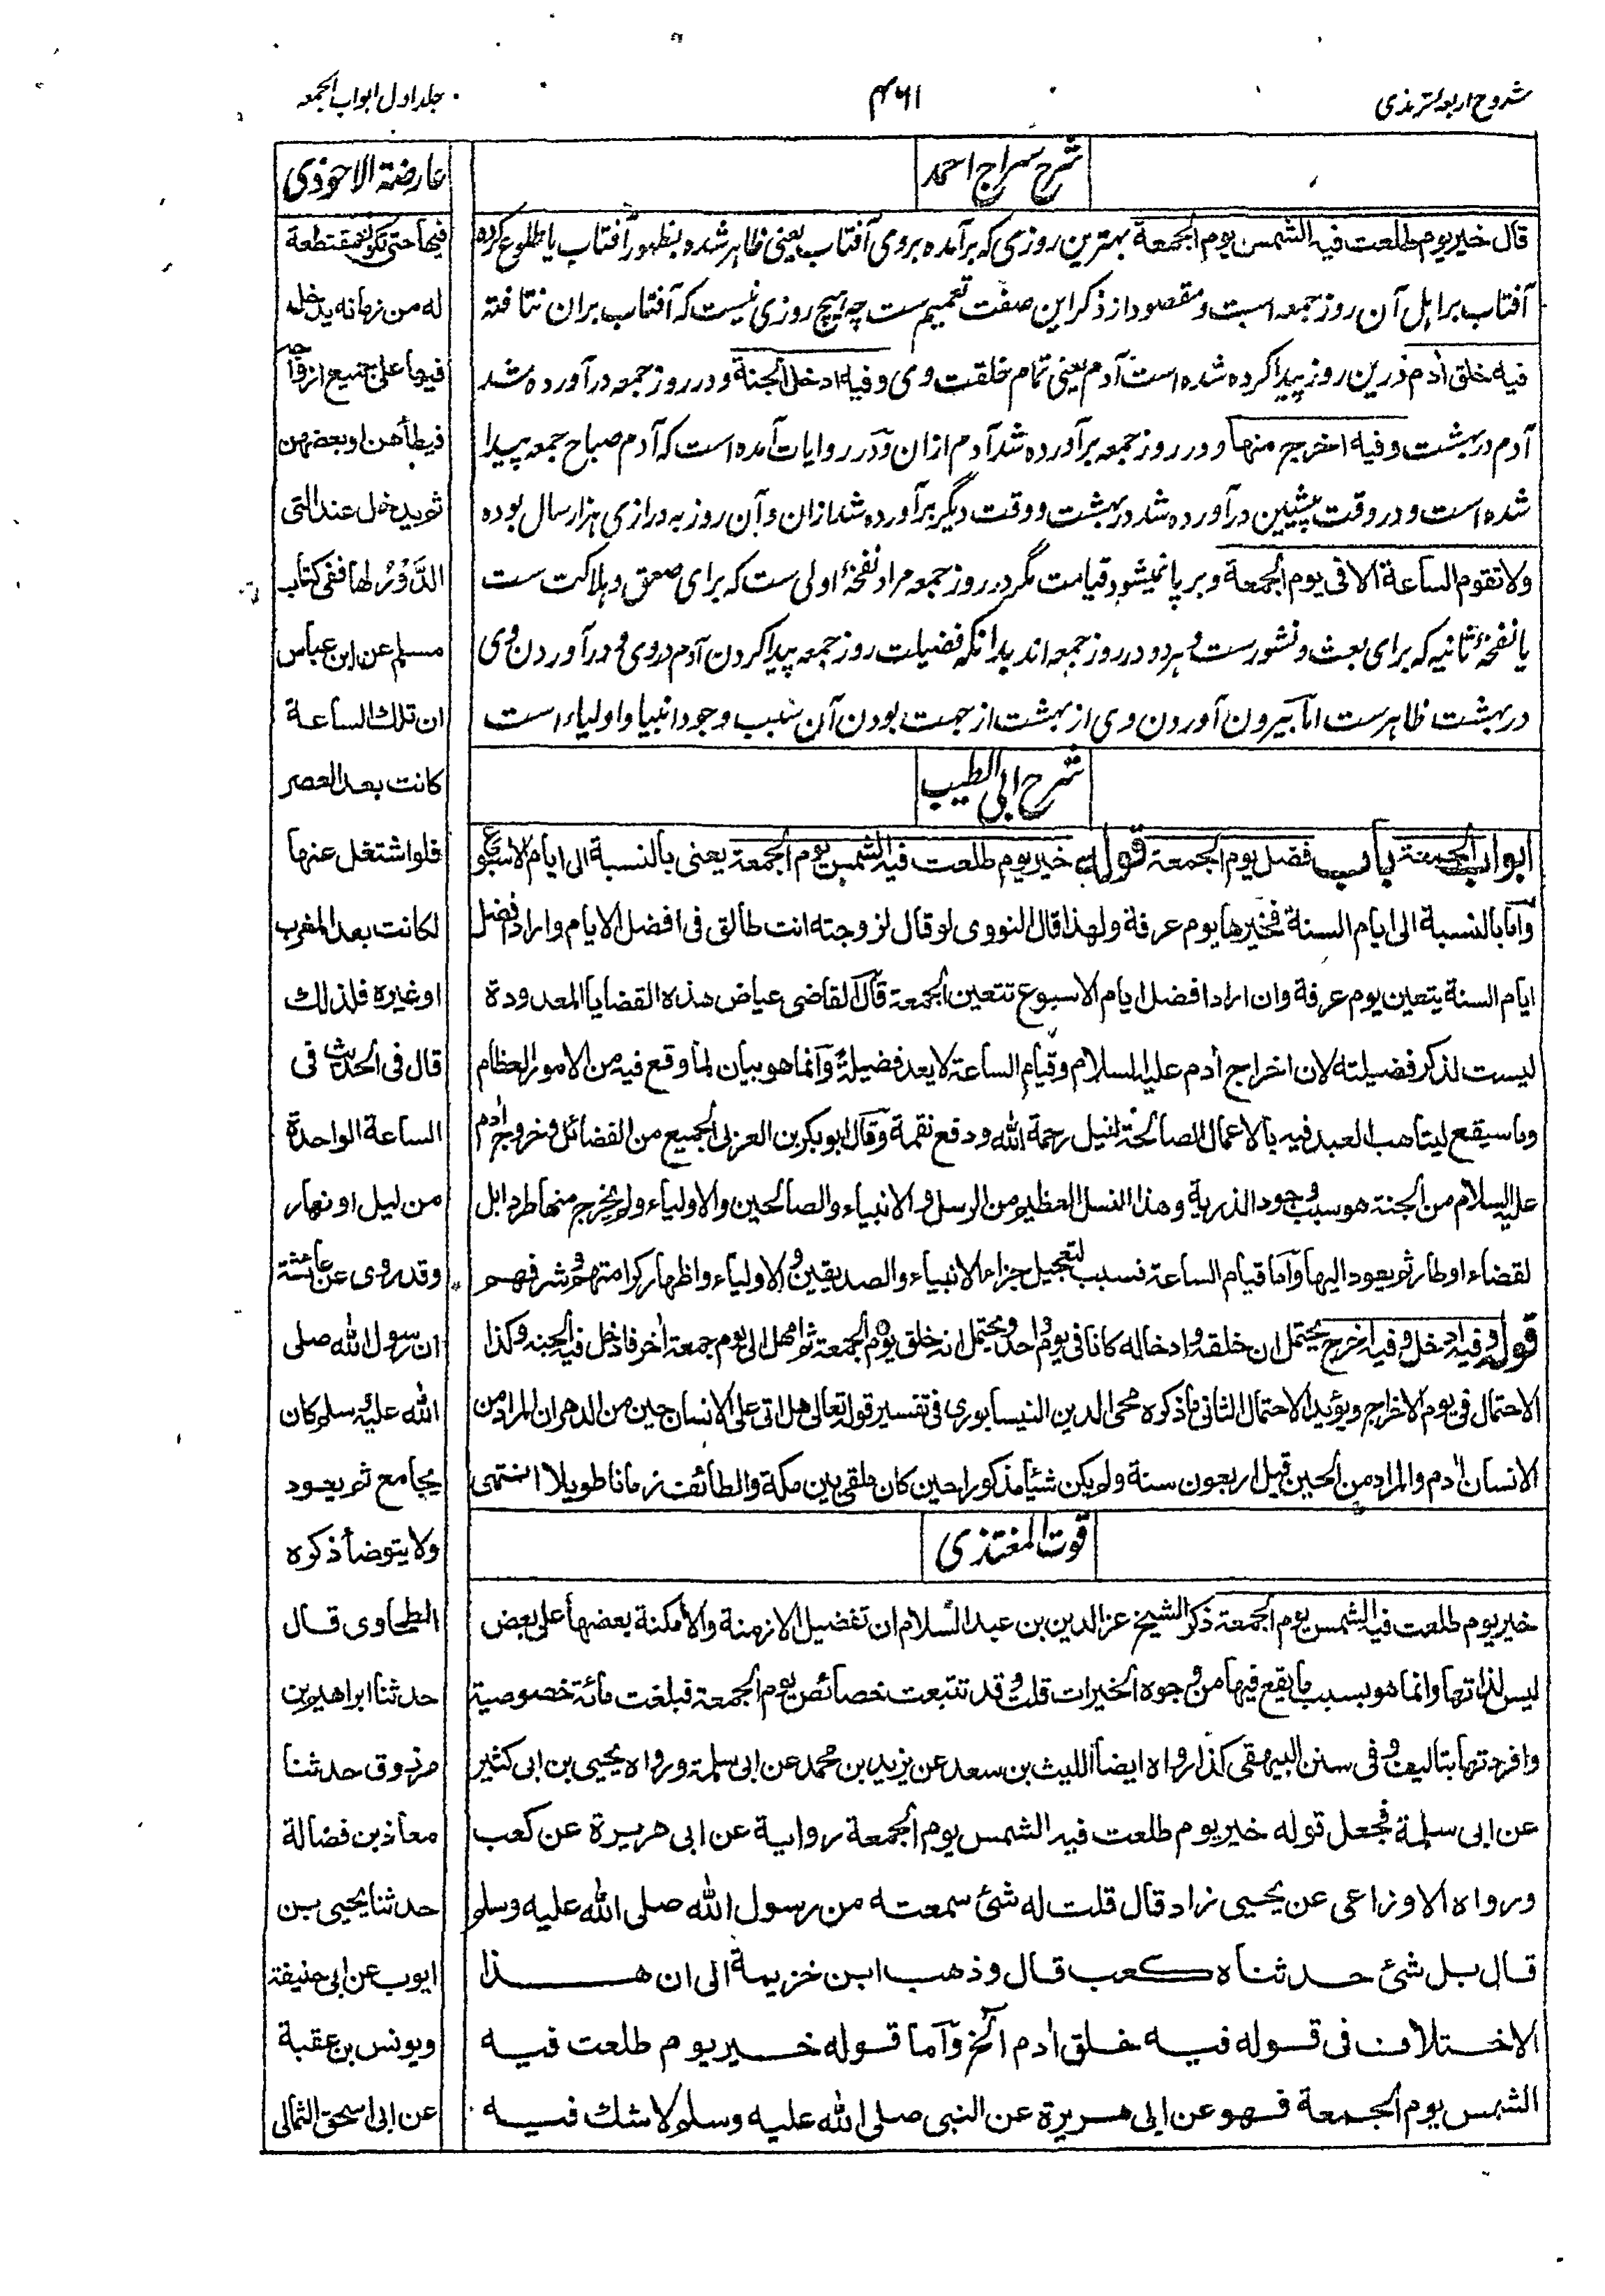 شروح اربعہ ترمذی
۴۶۱
جلد اول ابواب الجمعہ
شرح سراج احمد
قال خیر یوم طلعت فیہ الشمس یوم الجمعة بہترین روزی کہ برآمدہ بروی آفتاب یعنی ظاہر شدہ بظہور آفتاب یا طلوع کردہ
آفتاب بر اہل آن روز جمعہ است و مقصود از ذکر این صفت تعمیم ست چہ ہیچ روزی نیست کہ آفتاب بران نتافتہ
فیہ خلق اٰدم درین روز پیدا کردہ شدہ است آدم یعنی تمام خلقت وی و فیہ ادخل الجنة و در روز جمعہ در آوردہ شد
آدم در بہشت و فیہ اخرج منہا و در روز جمعہ برآوردہ شد آدم ازان و در روایات آمدہ است کہ آدم صباح جمعہ پیدا
شدہ است و در وقت پیشین در آوردہ شد در بہشت و وقت دیگر برآوردہ شد ازان و آن روز بہ درازی ہزار سال بودہ
ولا تقوم الساعة الا فی یوم الجمعة و بر پا نمیشود قیامت مگر در روز جمعہ مراد نفخۂ اولی ست کہ برای صعق و ہلاکت ست
یا نفخۂ ثانیہ کہ برای بعث و نشور ست و ہر دو در روز جمعہ اند بدانکہ فضیلت روز جمعہ پیدا کردن آدم در وی و در آوردن وی
در بہشت ظاہرست اما بیرون آوردن وی از بہشت از جہت بودن آن سبب وجود انبیا و اولیاء است
شرح ابی الطیب
ابواب الجمعة باب فضل یوم الجمعة قولہ خیر یوم طلعت فیہ الشمس یوم الجمعة یعنی بالنسبة الی ایام الاسبوع
واما بالنسبة الی ایام السنة فخیرها یوم عرفة ولهذا قال النووی لو قال لزوجته انت طالق فی افضل الایام واراد افضل
ایام السنة یتعین یوم عرفة وان اراد افضل ایام الاسبوع تتعین الجمعة قال القاضی عیاض هذه القضایا المعدودة
لیست لذکر فضیلته لان اخراج اٰدم علیہ السلام وقیام الساعة لا یعد فضیلة وانما هو بیان لما وقع فیه من الامور العظام
وما سیقع لیتاهب العبد فیه بالاعمال الصالحة لنیل رحمة الله ودفع نقمة وقال ابو بکر بن العزبی الجمیع من الفضائل وخروج اٰدم
علیہ السلام من الجنة هو سبب وجود الذریة وهذا النسل العظیم من الرسل والانبیاء والصالحین والاولیاء ولم یخرج منها طردا بل
لقضاء اوطار ثم یعود الیها واما قیام الساعة فسبب لتعجیل جزاء الانبیاء والصدیقین والاولیاء واظهار کرامتهم وشرفهم
قولہ وفیہ ادخل وفیہ اخرج یحتمل ان خلقه وادخاله کانا فی یوم واحد ویحتمل انه خلق یوم الجمعة ثم امهل الی یوم جمعة اٰخر فادخل فیه الجنة وکذا
الاحتمال فی یوم الاخراج ویؤید الاحتمال الثانی ما ذکره محی الدین النیسابوری فی تفسیر قولہ تعالی هل اتی علی الانسان حین من الدهر ان المراد من
الانسان اٰدم والمراد من الحین قیل اربعون سنة ولم یکن شیأ مذکورا حین کان ملقی بین مکة والطائف زمانا طویلا انتهی
قوت المغتذی
خیر یوم طلعت فیہ الشمس یوم الجمعة ذکر الشیخ عز الدین بن عبد السلام ان تفضیل الازمنة والامکنة بعضها علی بعض
لیس لذاتها وانما هو بسبب ما یقع فیها من وجوه الخیرات قلت وقد تتبعت خصائص یوم الجمعة فبلغت مائة خصوصیة
وافردتها بتالیف وفی سنن البیهقی کذا رواه ایضا اللیث بن سعد عن یزید بن محمد عن ابی سلمة ورواه یحیی بن ابی کثیر
عن ابی سلمة فجعل قوله خیر یوم طلعت فیه الشمس یوم الجمعة روایة عن ابی هریرة عن کعب
ورواه الاوزاعی عن یحیی زاد قال قلت له شئ سمعته من رسول الله صلی الله علیه وسلم
قال بل شئ حدثناه کعب قال وذهب ابن خزیمة الی ان هذا
الاختلاف فی قوله فیه خلق اٰدم الخ واما قوله خیر یوم طلعت فیه
الشمس یوم الجمعة فهو عن ابی هریرة عن النبی صلی الله علیه وسلم لا شك فیه
عارضة الاحوذی
فیها حتی تکون مقتطعة
له من زمانه یدخل
فیها علی جمیع ازواجه
فیطأهن او بعضهن
ثم یدخل عند التی
الدَّوْرُ لها ففی کتاب
مسلم عن ابن عباس
ان تلك الساعة
کانت بعد العصر
فلو اشتغل عنها
لکانت بعد المغرب
او غیره فلذلك
قال فی الحدیث فی
الساعة الواحدة
من لیل او نهار
وقد روی عن عائشة
ان رسول الله صلی
الله علیه وسلم کان
یجامع ثم یعود
ولا یتوضأ ذکره
الطحاوی قال
حدثنا ابراهیم بن
مرزوق حدثنا
معاذ بن فضالة
حدثنا یحیی بن
ایوب عن ابی حنیفة
ویونس بن عقبة
عن ابی اسحق الثمالی